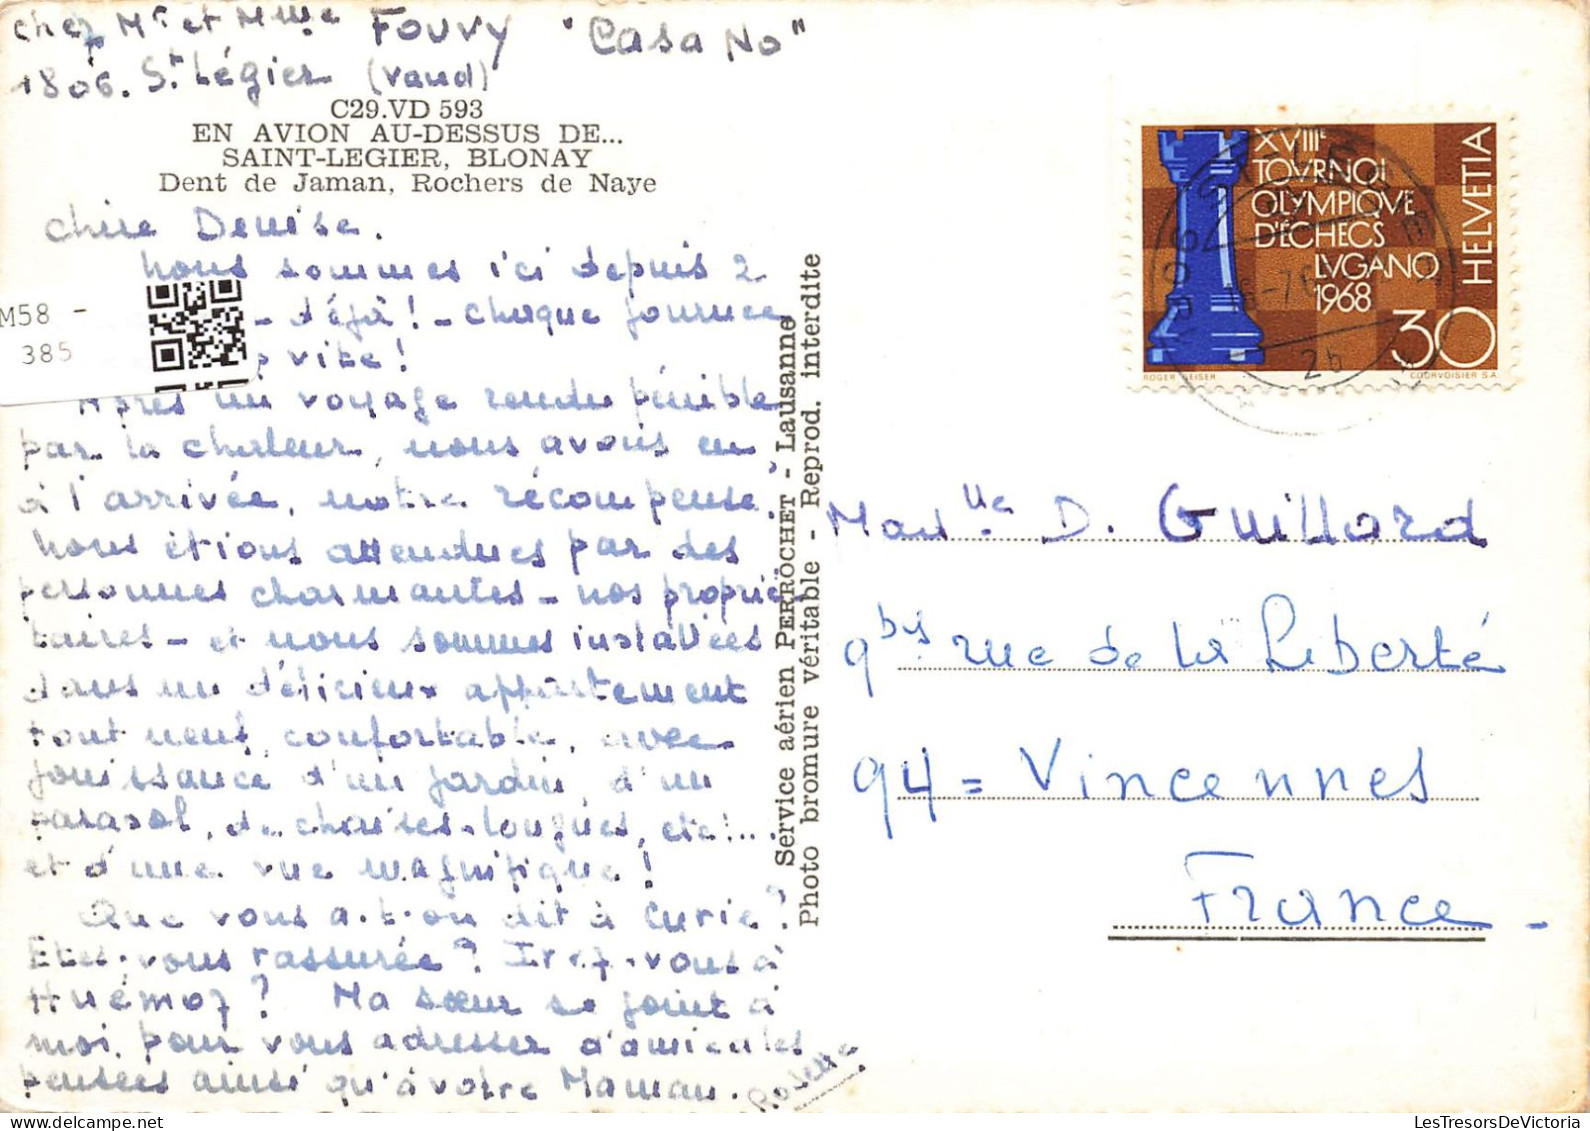 chez Mr et Mme FOUVY "Casa No"
1806. St Légier (Vaud)
C29.VD 593
EN AVION AU-DESSUS DE...
SAINT-LEGIER, BLONAY
Dent de Jaman, Rochers de Naye
chère Denise.
Nous sommes ici depuis 2
- déjà! - chaque journée
vite!
M58 -
385
Après un voyage rendu pénible
par la chaleur, nous avons eu
à l'arrivée, notre récompense.
Nous étions attendues par des
personnes charmantes - nos proprié-
taires - et nous sommes installées
dans un délicieux appartement
tout neuf, confortable, avec
jouissance d'un jardin, d'un
parasol, de chaises-longues, etc!...
et d'une vue magnifique!
Que vous a-t-on dit à Curie?
Etes-vous rassurée? Irez-vous à
Huémoz? Ma sœur se joint à
moi pour vous adresser d'amicales
pensées ainsi qu'à votre Maman.
Service aérien PERROCHET - Lausanne
Photo bromure véritable - Reprod. interdite
XVIIIE
TOVRNOI
OLYMPIQVE
D'ÉCHECS
LVGANO
1968
HELVETIA
30
ROGER GEISER
COURVOISIER S.A.
1806 ST-LÉGIER
Madlle D. Guillard
9bis rue de la Liberté
94 = Vincennes
France -
LesTresorsDeVictoria.com